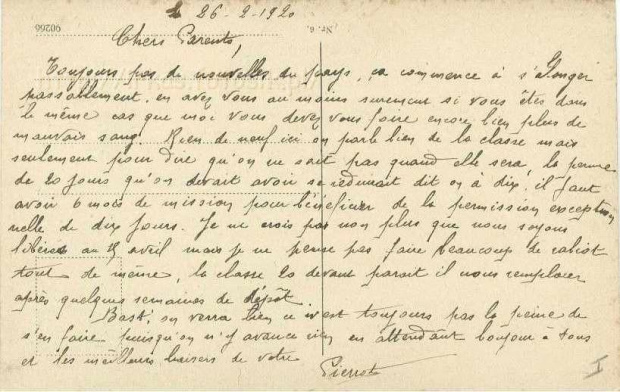 le 26-2-1920
90266
(Nr. 6
Chers Parents,
Toujours pas de nouvelles du pays, ça commence à s'alonger
passablement, en avez vous au moins surement si vous êtes dans
le même cas que moi vous devez vous faire encore bien plus de
mauvais sang. Rien de neuf ici on parle bien de la classe mais
seulement pour dire qu'on ne sait pas quand elle sera, la perme
de 20 jours qu'on devait avoir se réduirait dit on à dix, il faut
avoir 6 mois de mission pour bénéficier de la permission exception
nelle de dix jours. Je ne crois pas non plus que nous soyons
libérés au 15 avril mais je ne pense pas faire beaucoup de rabiot
tout de même, la classe 20 devant parait il nous remplacer
après quelques semaines de dépôt.
Bast, on verra bien ce n'est toujours pas la peine de
s'en faire puisqu'on n'y avance rien en attendant bonjour à tous
et les meilleurs baisers de votre
Pierrot
I